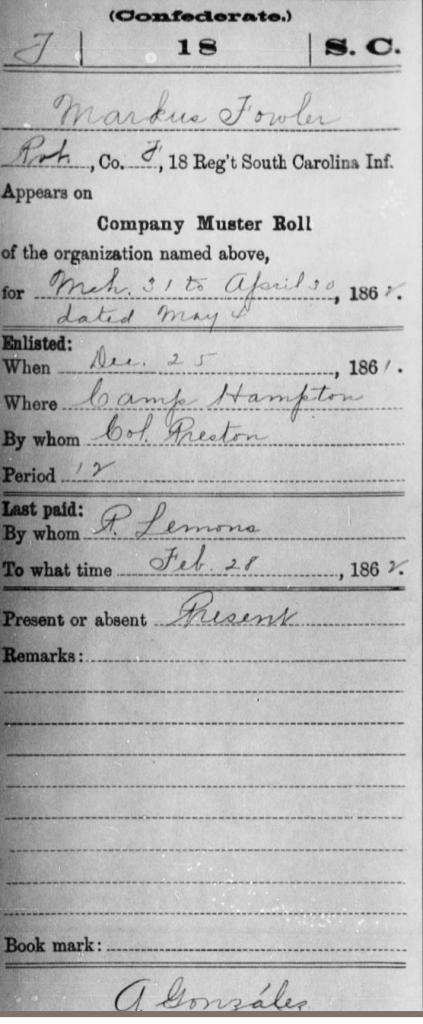 (Confederate.)
F | 18 | S. C.
Markus Fowler
Pvt., Co. F, 18 Reg't South Carolina Inf.
Appears on
Company Muster Roll
of the organization named above,
for Mch. 31 to April 30, 1862.
dated May 4
Enlisted:
When Dec. 25, 1861.
Where Camp Hampton
By whom Col. Preston
Period 12
Last paid:
By whom R. Lemons
To what time Feb. 28, 1862.
Present or absent Present
Remarks:
Book mark:
A Gonzáles